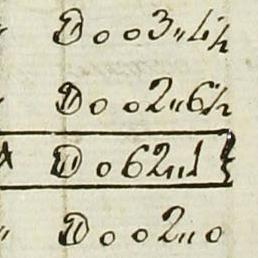 D o o 3 " 4 ½
D o o 2 " 6 ½
D o 6 2 " 1 }
D o o 2 " 0